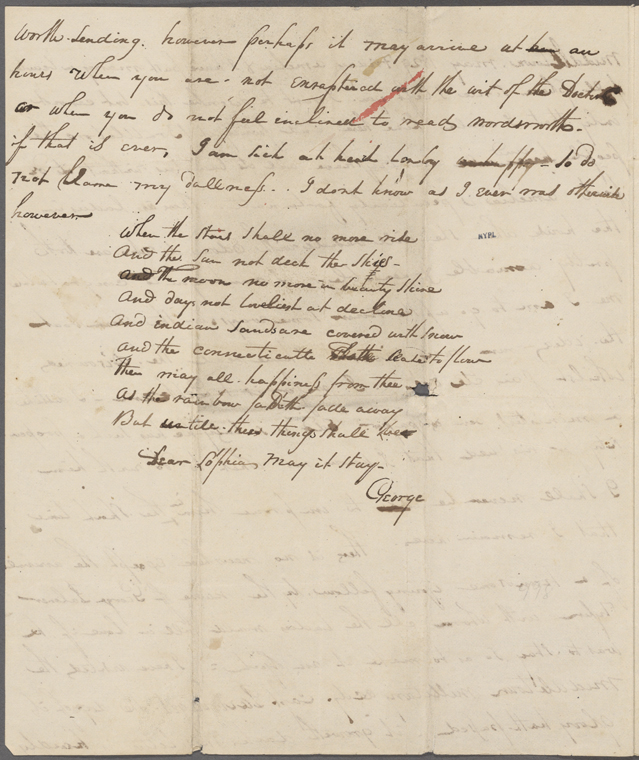 worth sending. however perhaps it may arrive at an
hour when you are not enraptured with the wit of the Doctor
or when you do not feel inclined to read wordsworth.
if that is ever, I am sick at heart so do
not blame my dullness.. I dont know as I ever was otherwise
however
When the stars shall no more ride
And the Sun not deck the skies -
and the moon no more in beauty shine
And days not loveliest at decline
And indian Sands are covered with snow
And the connecticutte to flow
Then may all happiness from thee
As the rainbow fade away
But untill these things shall
Dear Sophia may it stay -
George
NYPL